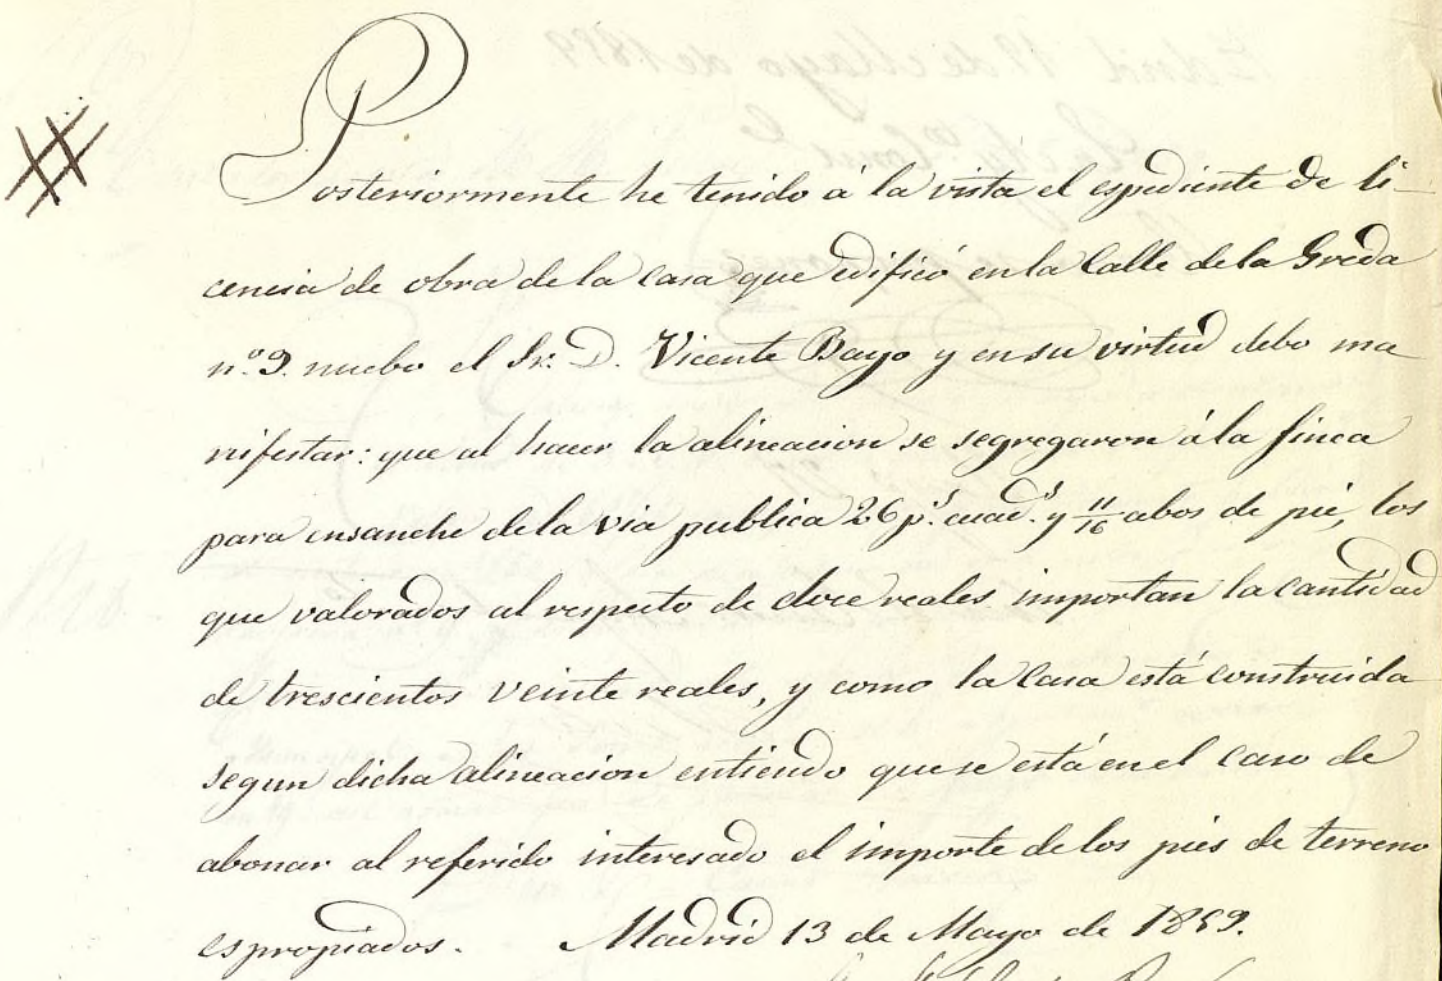 Posteriormente he tenido á la vista el espediente de li-
cencia de obra de la casa que edificó en la Calle de la Greda
n.º 9. nuebo el Sr. D. Vicente Bayo y en su virtud debo ma
nifestar: que al hacer la alineacion se segregaron á la finca
para ensanche de la via publica 26 p.s cuad.s y 11/16 abos de pie, los
que valorados al respecto de doce reales importan la cantidad
de trescientos veinte reales, y como la Casa está construida
segun dicha alineacion entiendo que se está en el caso de
abonar al referido interesado el importe de los pies de terreno
espropiados. Madrid 13 de Mayo de 1859.